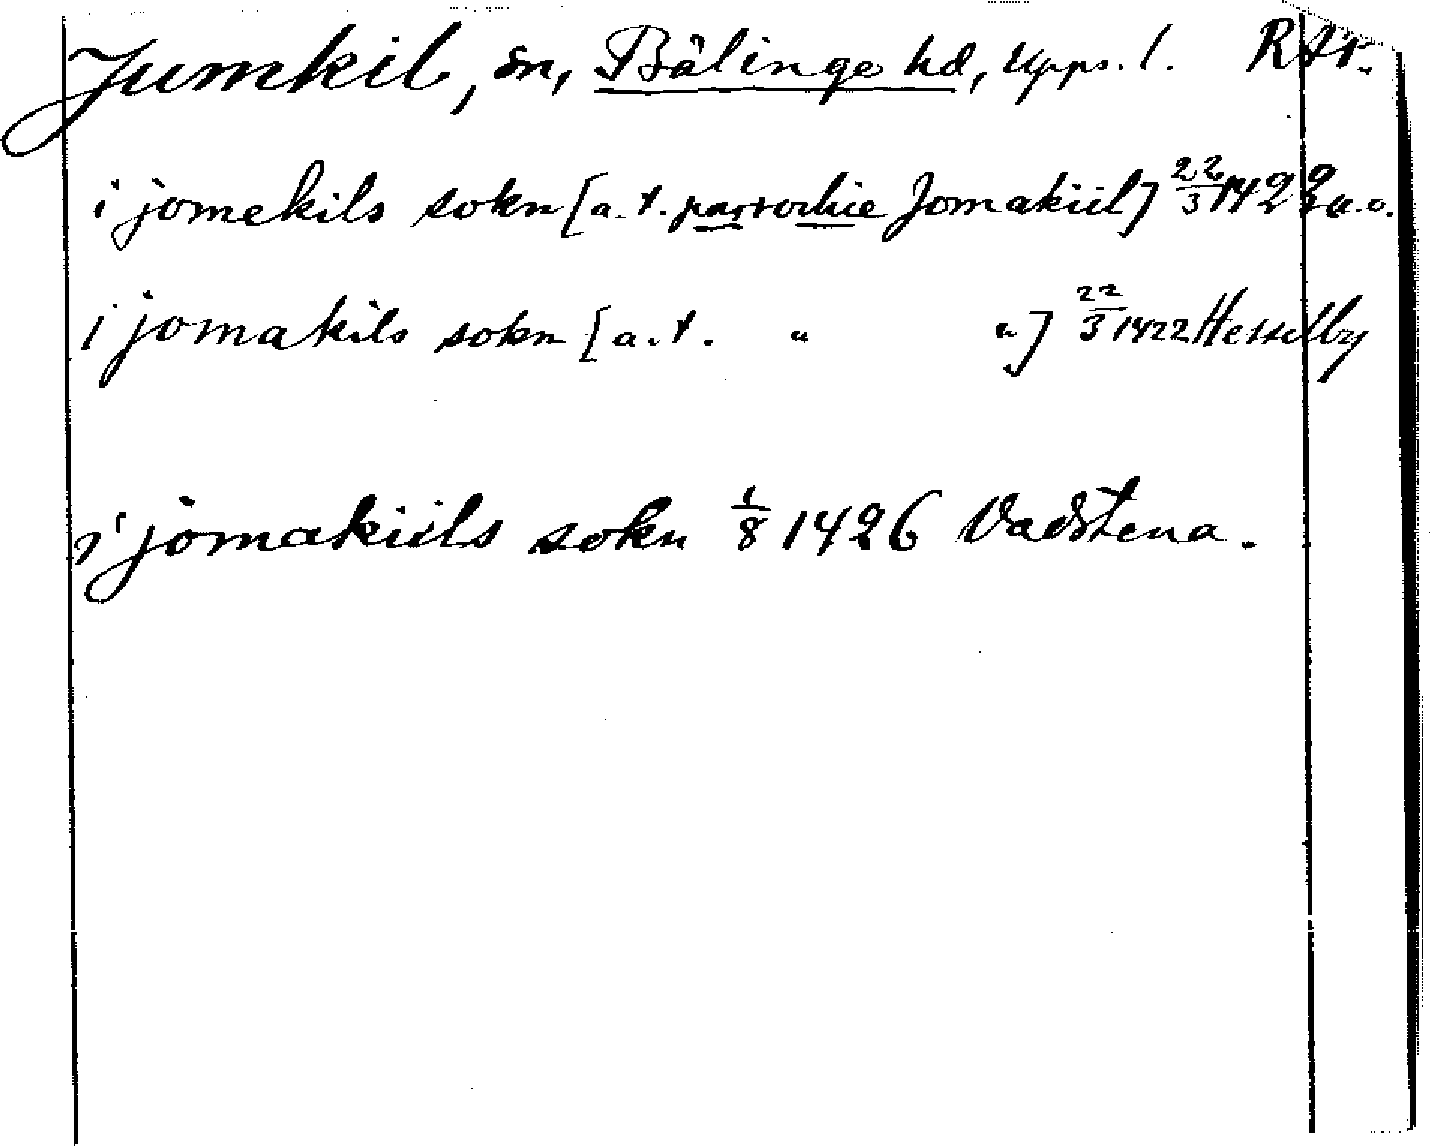 Jumkil, sn, Bälinge hd, Upps. l. RAr.
i jomekils sokn [a. t. parrochie Jomakiil] 22/3 1422 u.o.
i jomakils sokn [a. t. " "] 22/3 1422 Hesselby
i jomakiils sokn 1/8 1426 Vadstena.